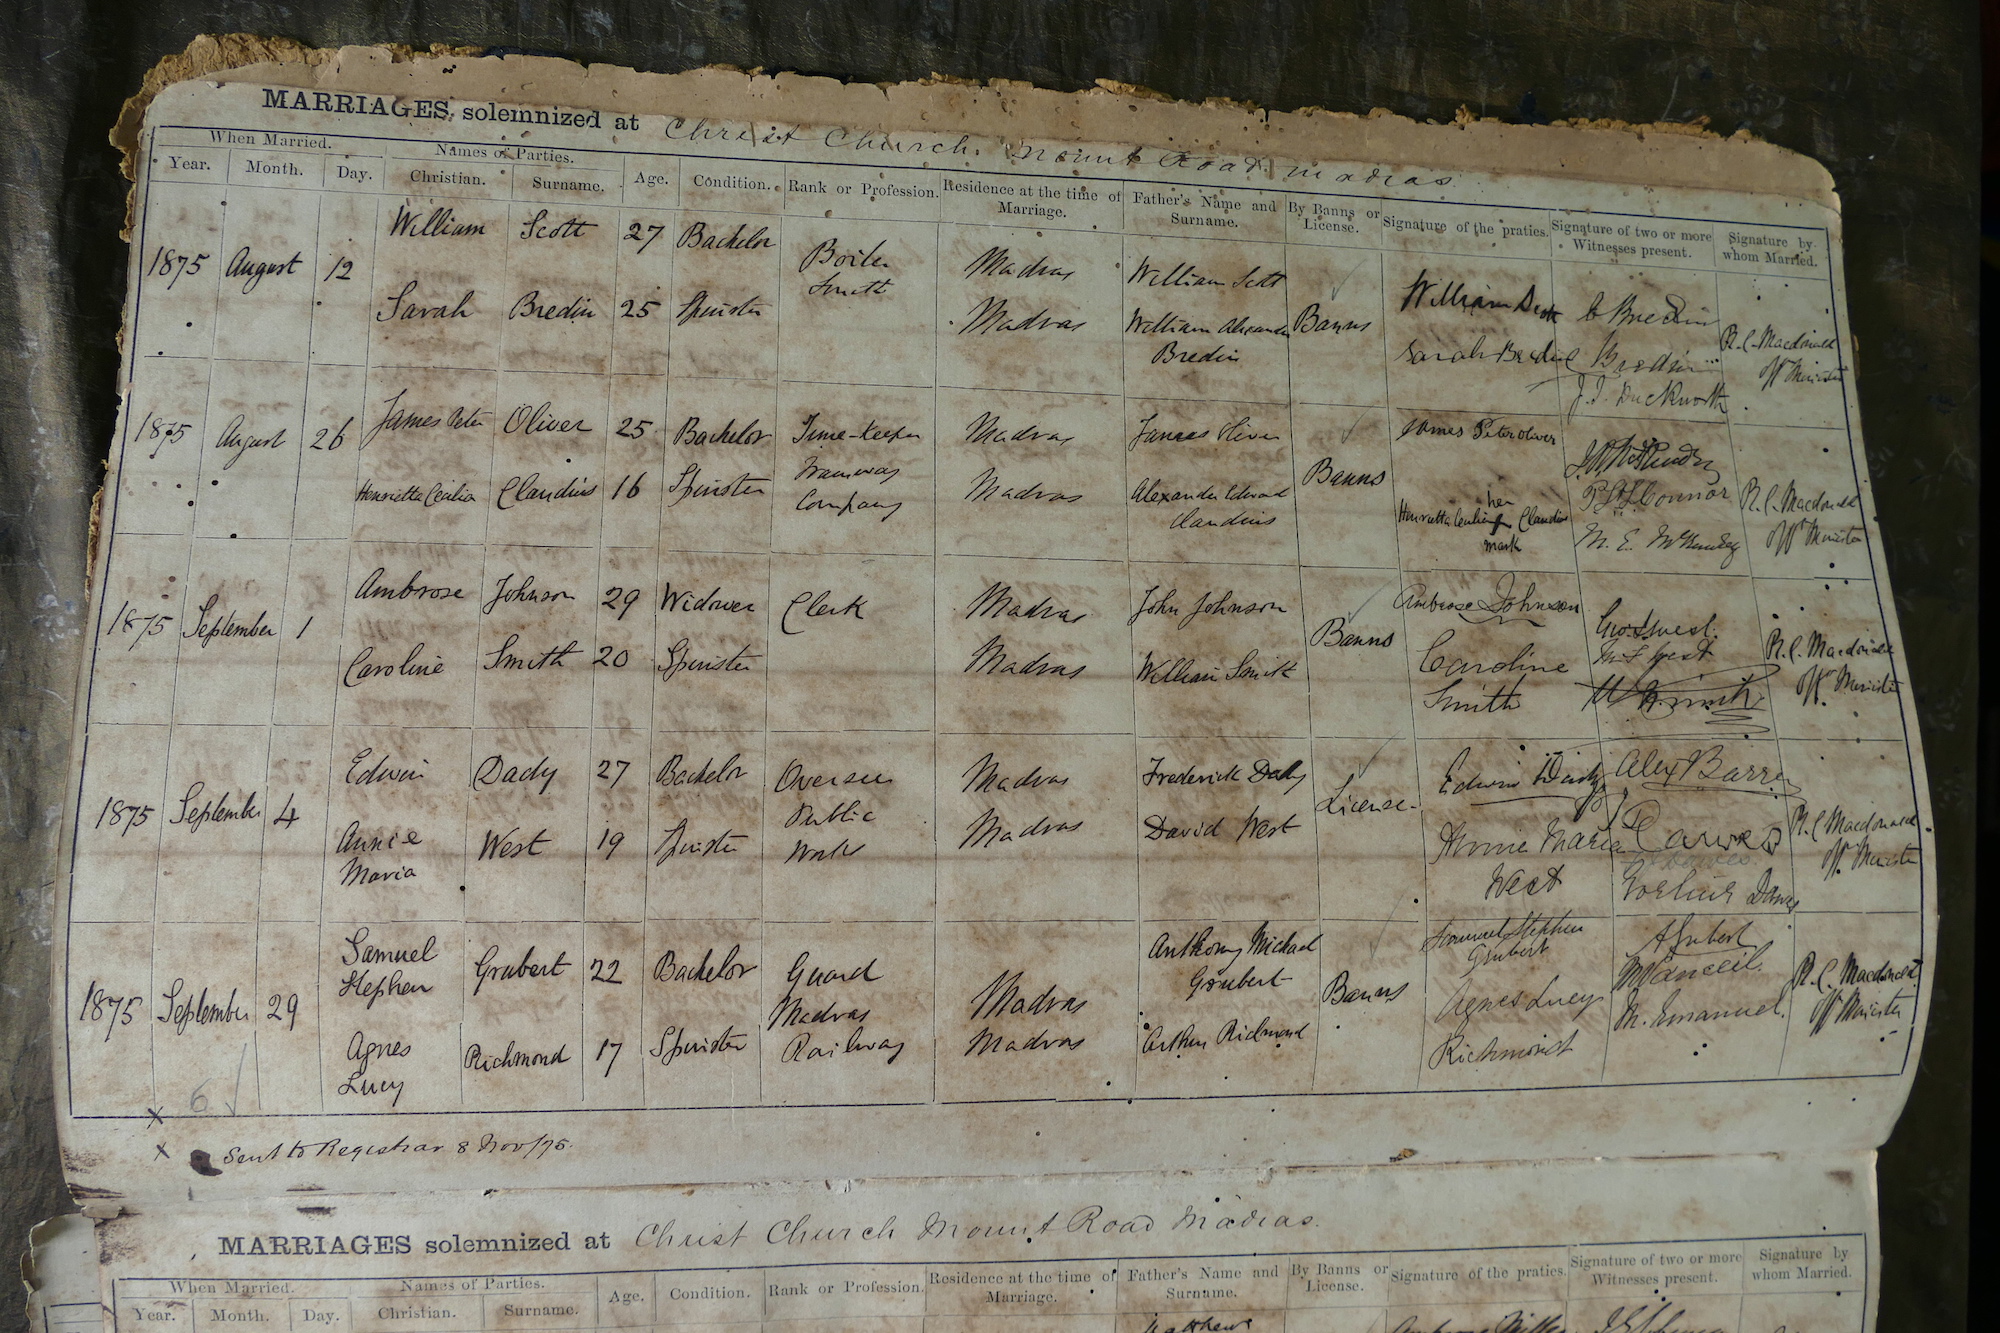 MARRIAGES solemnized at Christ Church Mount Road Madras
When Married. Names of Parties. Age. Condition. Rank or Profession. Residence at the time of Marriage. Father's Name and Surname. By Banns or License. Signature of the praties. Signature of two or more Witnesses present. Signature by whom Married.
Year. Month. Day. Christian. Surname.
1875 August 12
William Scott 27 Bachelor Boiler Smith Madras William Scott Banns William Scott C Bredin
Sarah Bredin 25 Spinster Madras William Alexander Bredin Sarah Bredin Bredin
J. J. Duckworth
R. C. Macdonald
Offg Minister
1875 August 26
James Peter Oliver 25 Bachelor Time-Keeper Tramway Company Madras James Oliver Banns James Peter Oliver
Henrietta Cecilia Claudius 16 Spinster Madras Alexander Edward Claudius
her
Henrietta Cecilia Claudius
mark
Connor
M. E.
R. C. Macdonald
Offg Minister
1875 September 1
Ambrose Johnson 29 Widower Clerk Madras John Johnson Banns Ambrose Johnson Geo. West.
Caroline Smith 20 Spinster Madras William Smith Caroline Smith West
R. C. Macdonald
Offg Minister
1875 September 4
Edwin Dady 27 Bachelor Overseer Public Works Madras Frederick Dady License Edwin Dady Alex Barren
Annie Maria West 19 Spinster Madras David West Annie Maria West Dawes
Dawes
R. C. Macdonald
Offg Minister
1875 September 29
Samuel Stephen Grubert 22 Bachelor Guard Madras Railway Madras Anthony Michael Grubert Banns Samuel Stephen Grubert A Grubert
Agnes Lucy Richmond 17 Spinster Madras Arthur Richmond Agnes Lucy Richmond
M. Emanuel.
R. C. Macdonald
Offg Minister
6
x
x Sent to Registrar 8 Nov/75.
MARRIAGES solemnized at Christ Church Mount Road Madras.
When Married. Names of Parties. Age. Condition. Rank or Profession. Residence at the time of Marriage. Father's Name and Surname. By Banns or License. Signature of the praties. Signature of two or more Witnesses present. Signature by whom Married.
Year. Month. Day. Christian. Surname.
Matthews